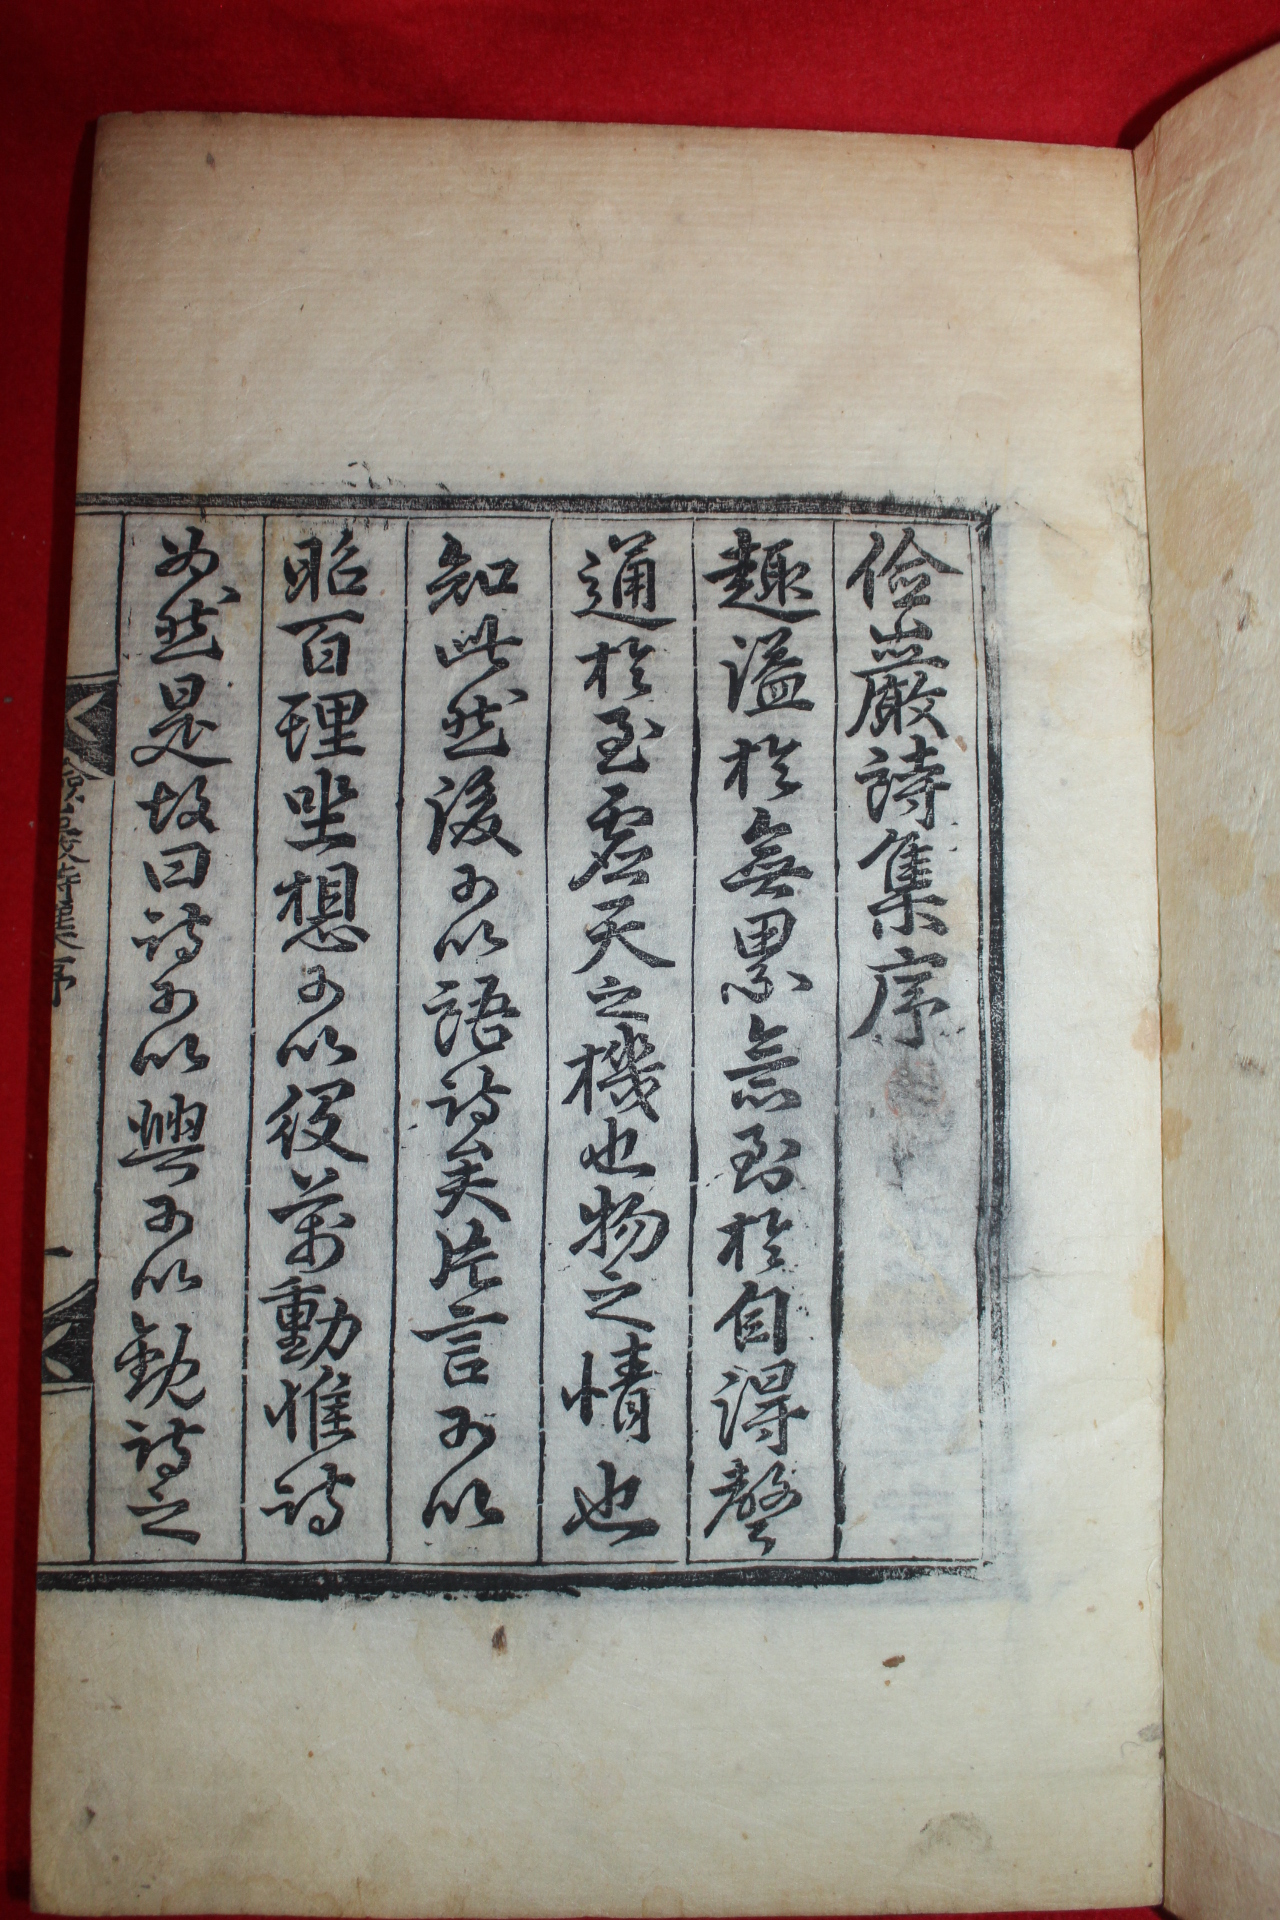 儉巖詩集序
趣溢於無累意到於自得聲
通於至虛天之機也物之情也
知此然後可以語詩矣片言可以
昭百理坐想可以役萬動惟詩
为然是故曰詩可以興可以觀詩之
儉巖詩集序
一